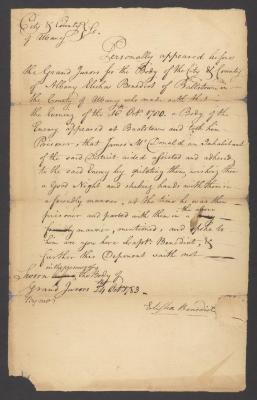 City & County
of Albany } Ss.
Personally appeared before
the Grand Jurors for the Body of the City & County
of Albany Elisha Benedict of Ballstown in
the County of Albany who made oath that
the Evening of the 16th Octr. 1780. a Body of the
Enemy appeared at Ballstown and took him
Prisoner, that James McDonald an Inhabitant
of the said District aided assisted and adhered
to the said Enemy by wishing them
a Good Night and shaking hands with them in
a friendly manner, at the time he was then
prisoner and parted with them in the above
manner, mentioned, and spoke to
him are you here Capt. Benedict, &
further this Deponent saith not
in the presence of
Sworn the Body of
Grand Jurors 24 Octr. 1783
Elisha Benedict